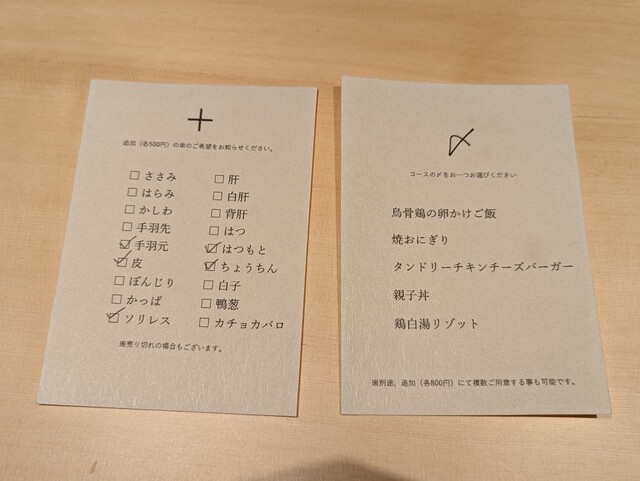 +
追加（各500円）の串のご希望をお知らせください。
□ ささみ
□ はらみ
□ かしわ
□ 手羽先
☑ 手羽元
☑ 皮
□ ぼんじり
□ かっぱ
☑ ソリレス
□ 肝
□ 白肝
□ 背肝
□ はつ
☑ はつもと
☑ ちょうちん
□ 白子
□ 鴨葱
□ カチョカバロ
※売り切れの場合もございます。
〆
コースの〆をお一つお選びください
烏骨鶏の卵かけご飯
焼おにぎり
タンドリーチキンチーズバーガー
親子丼
鶏白湯リゾット
※別途、追加（各800円）にて複数ご用意する事も可能です。